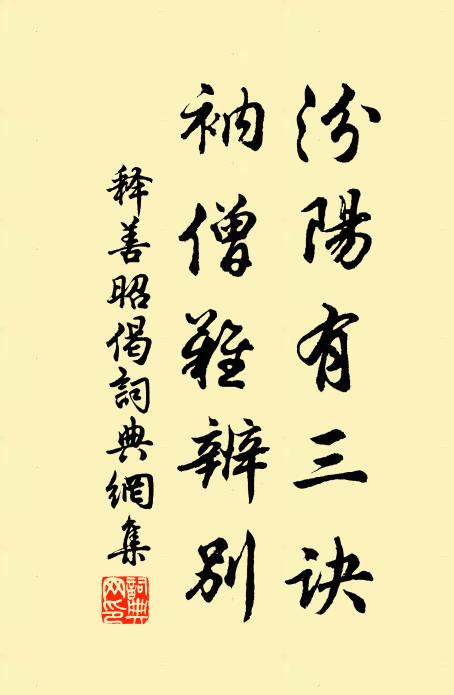 汾陽有三訣
衲僧難辨別
释善昭偈詞典網集
詞典網印